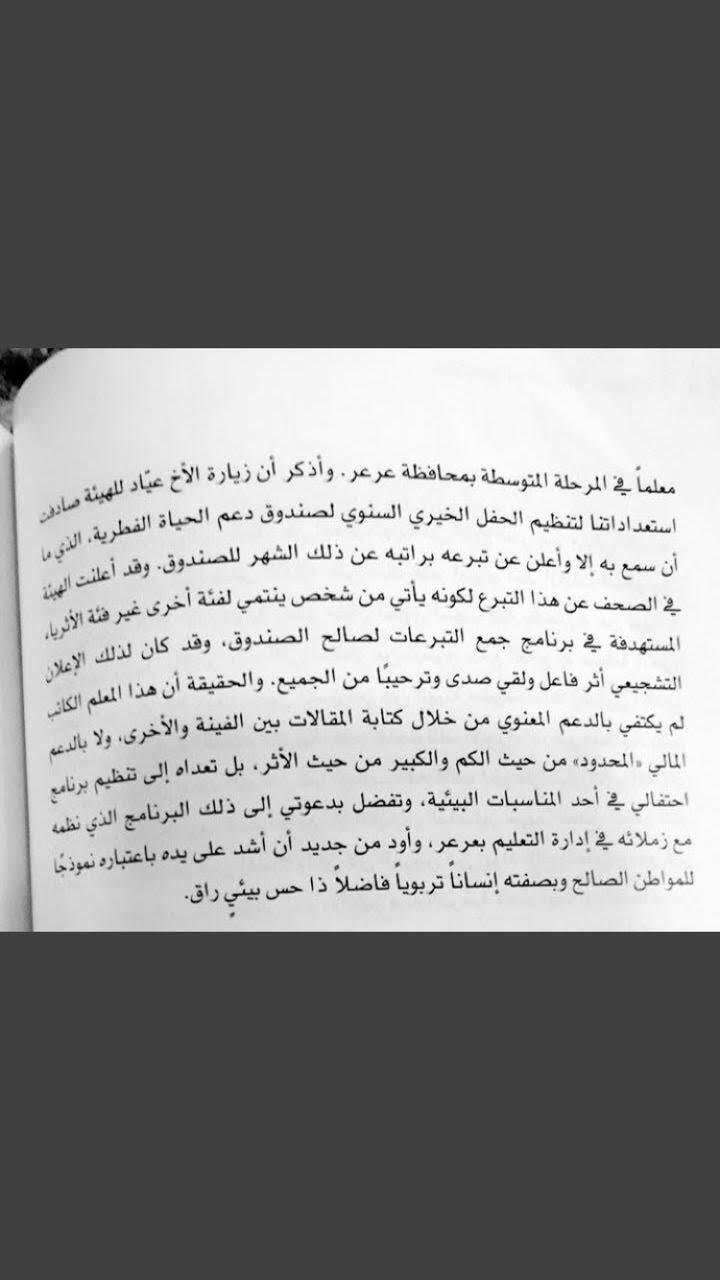 معلماً في المرحلة المتوسطة بمحافظة عرعر. وأذكر أن زيارة الأخ عيّاد للهيئة صادفت
استعداداتنا لتنظيم الحفل الخيري السنوي لصندوق دعم الحياة الفطرية، الذي ما
أن سمع به إلا وأعلن عن تبرعه براتبه عن ذلك الشهر للصندوق. وقد أعلنت الهيئة
في الصحف عن هذا التبرع لكونه يأتي من شخص ينتمي لفئة أخرى غير فئة الأثرياء،
المستهدفة في برنامج جمع التبرعات لصالح الصندوق، وقد كان لذلك الإعلان
التشجيعي أثر فاعل ولقي صدى وترحيبًا من الجميع. والحقيقة أن هذا المعلم الكاتب
لم يكتفي بالدعم المعنوي من خلال كتابة المقالات بين الفينة والأخرى، ولا بالدعم
المالي «المحدود» من حيث الكم والكبير من حيث الأثر، بل تعداه إلى تنظيم برنامج
احتفالي في أحد المناسبات البيئية، وتفضل بدعوتي إلى ذلك البرنامج الذي نظمه
مع زملائه في إدارة التعليم بعرعر، وأود من جديد أن أشد على يده باعتباره نموذجًا
للمواطن الصالح وبصفته إنساناً تربوياً فاضلاً ذا حس بيئيٍ راق.